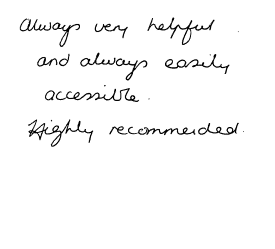 Always very helpful.
and always easily
accessible.
Highly recommended.